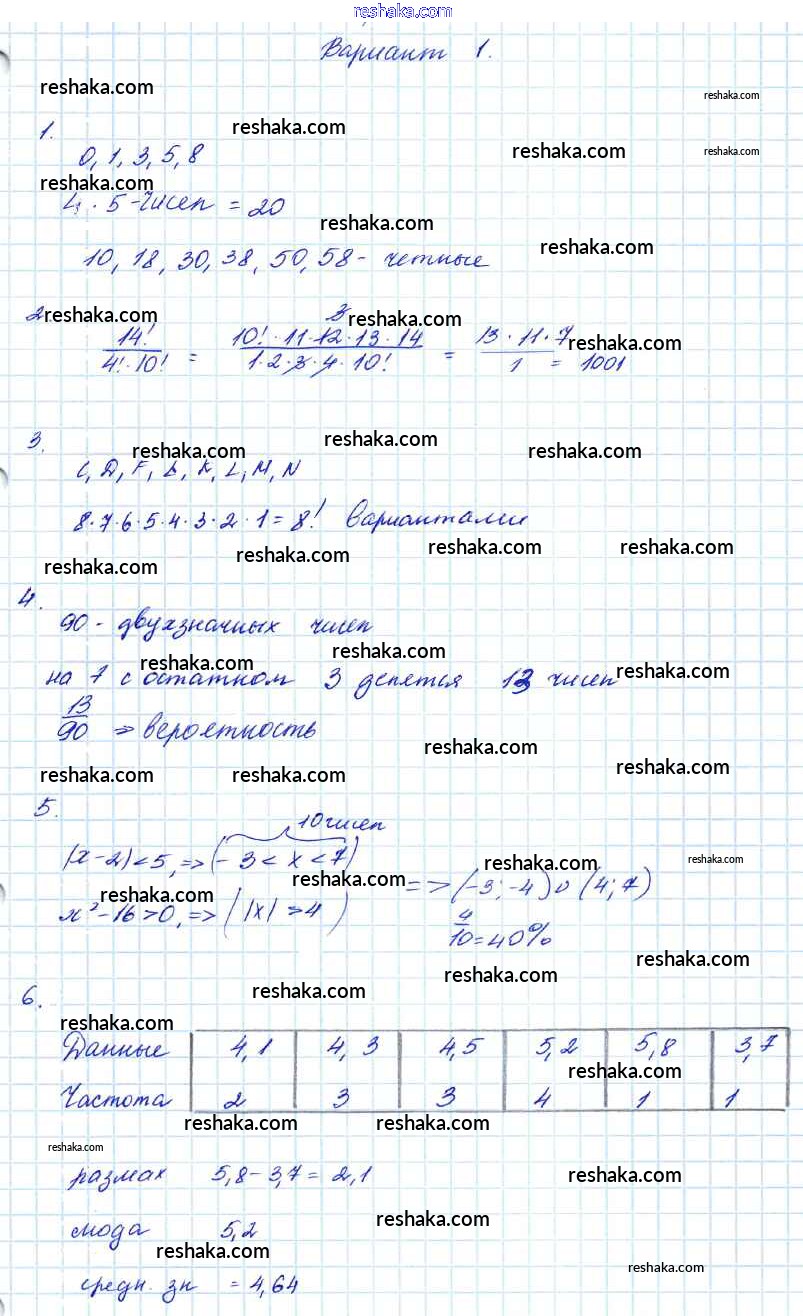 reshaka.com
Вариант 1.
reshaka.com
reshaka.com
1.
reshaka.com
0, 1, 3, 5, 8
reshaka.com
reshaka.com
reshaka.com
4 · 5 - чисел = 20
reshaka.com
reshaka.com
10, 18, 30, 38, 50, 58 - четные
2 reshaka.com
3 reshaka.com
14! / 4! · 10! = 10! · 11 · 12 · 13 · 14 / 1 · 2 · 3 · 4 · 10! = 13 · 11 · 7 / 1 = 1001
reshaka.com
3.
reshaka.com
reshaka.com
reshaka.com
C, D, F, K, L, M, N
8·7·6·5·4·3·2·1 = 8! вариантами
reshaka.com
reshaka.com
reshaka.com
reshaka.com
4.
90 - двухзначных чисел
reshaka.com
reshaka.com
reshaka.com
на 7 с остатком 3 делятся 13 чисел
13/90 => вероятность
reshaka.com
reshaka.com
reshaka.com
reshaka.com
5.
10 чисел
|x-2|<5, => (-3 < x < 7)
reshaka.com
reshaka.com
reshaka.com
reshaka.com
x² - 16 > 0, => (|x| > 4) => (-3; -4) ∪ (4; 7)
4/10 = 40%
reshaka.com
reshaka.com
reshaka.com
6.
reshaka.com
Данные 4,1 4,3 4,5 5,2 5,8 3,7
reshaka.com
Частота 2 3 3 4 1 1
reshaka.com
reshaka.com
reshaka.com
размах 5,8 - 3,7 = 2,1
reshaka.com
мода 5,2
reshaka.com
reshaka.com
reshaka.com
средн. зн = 4,64